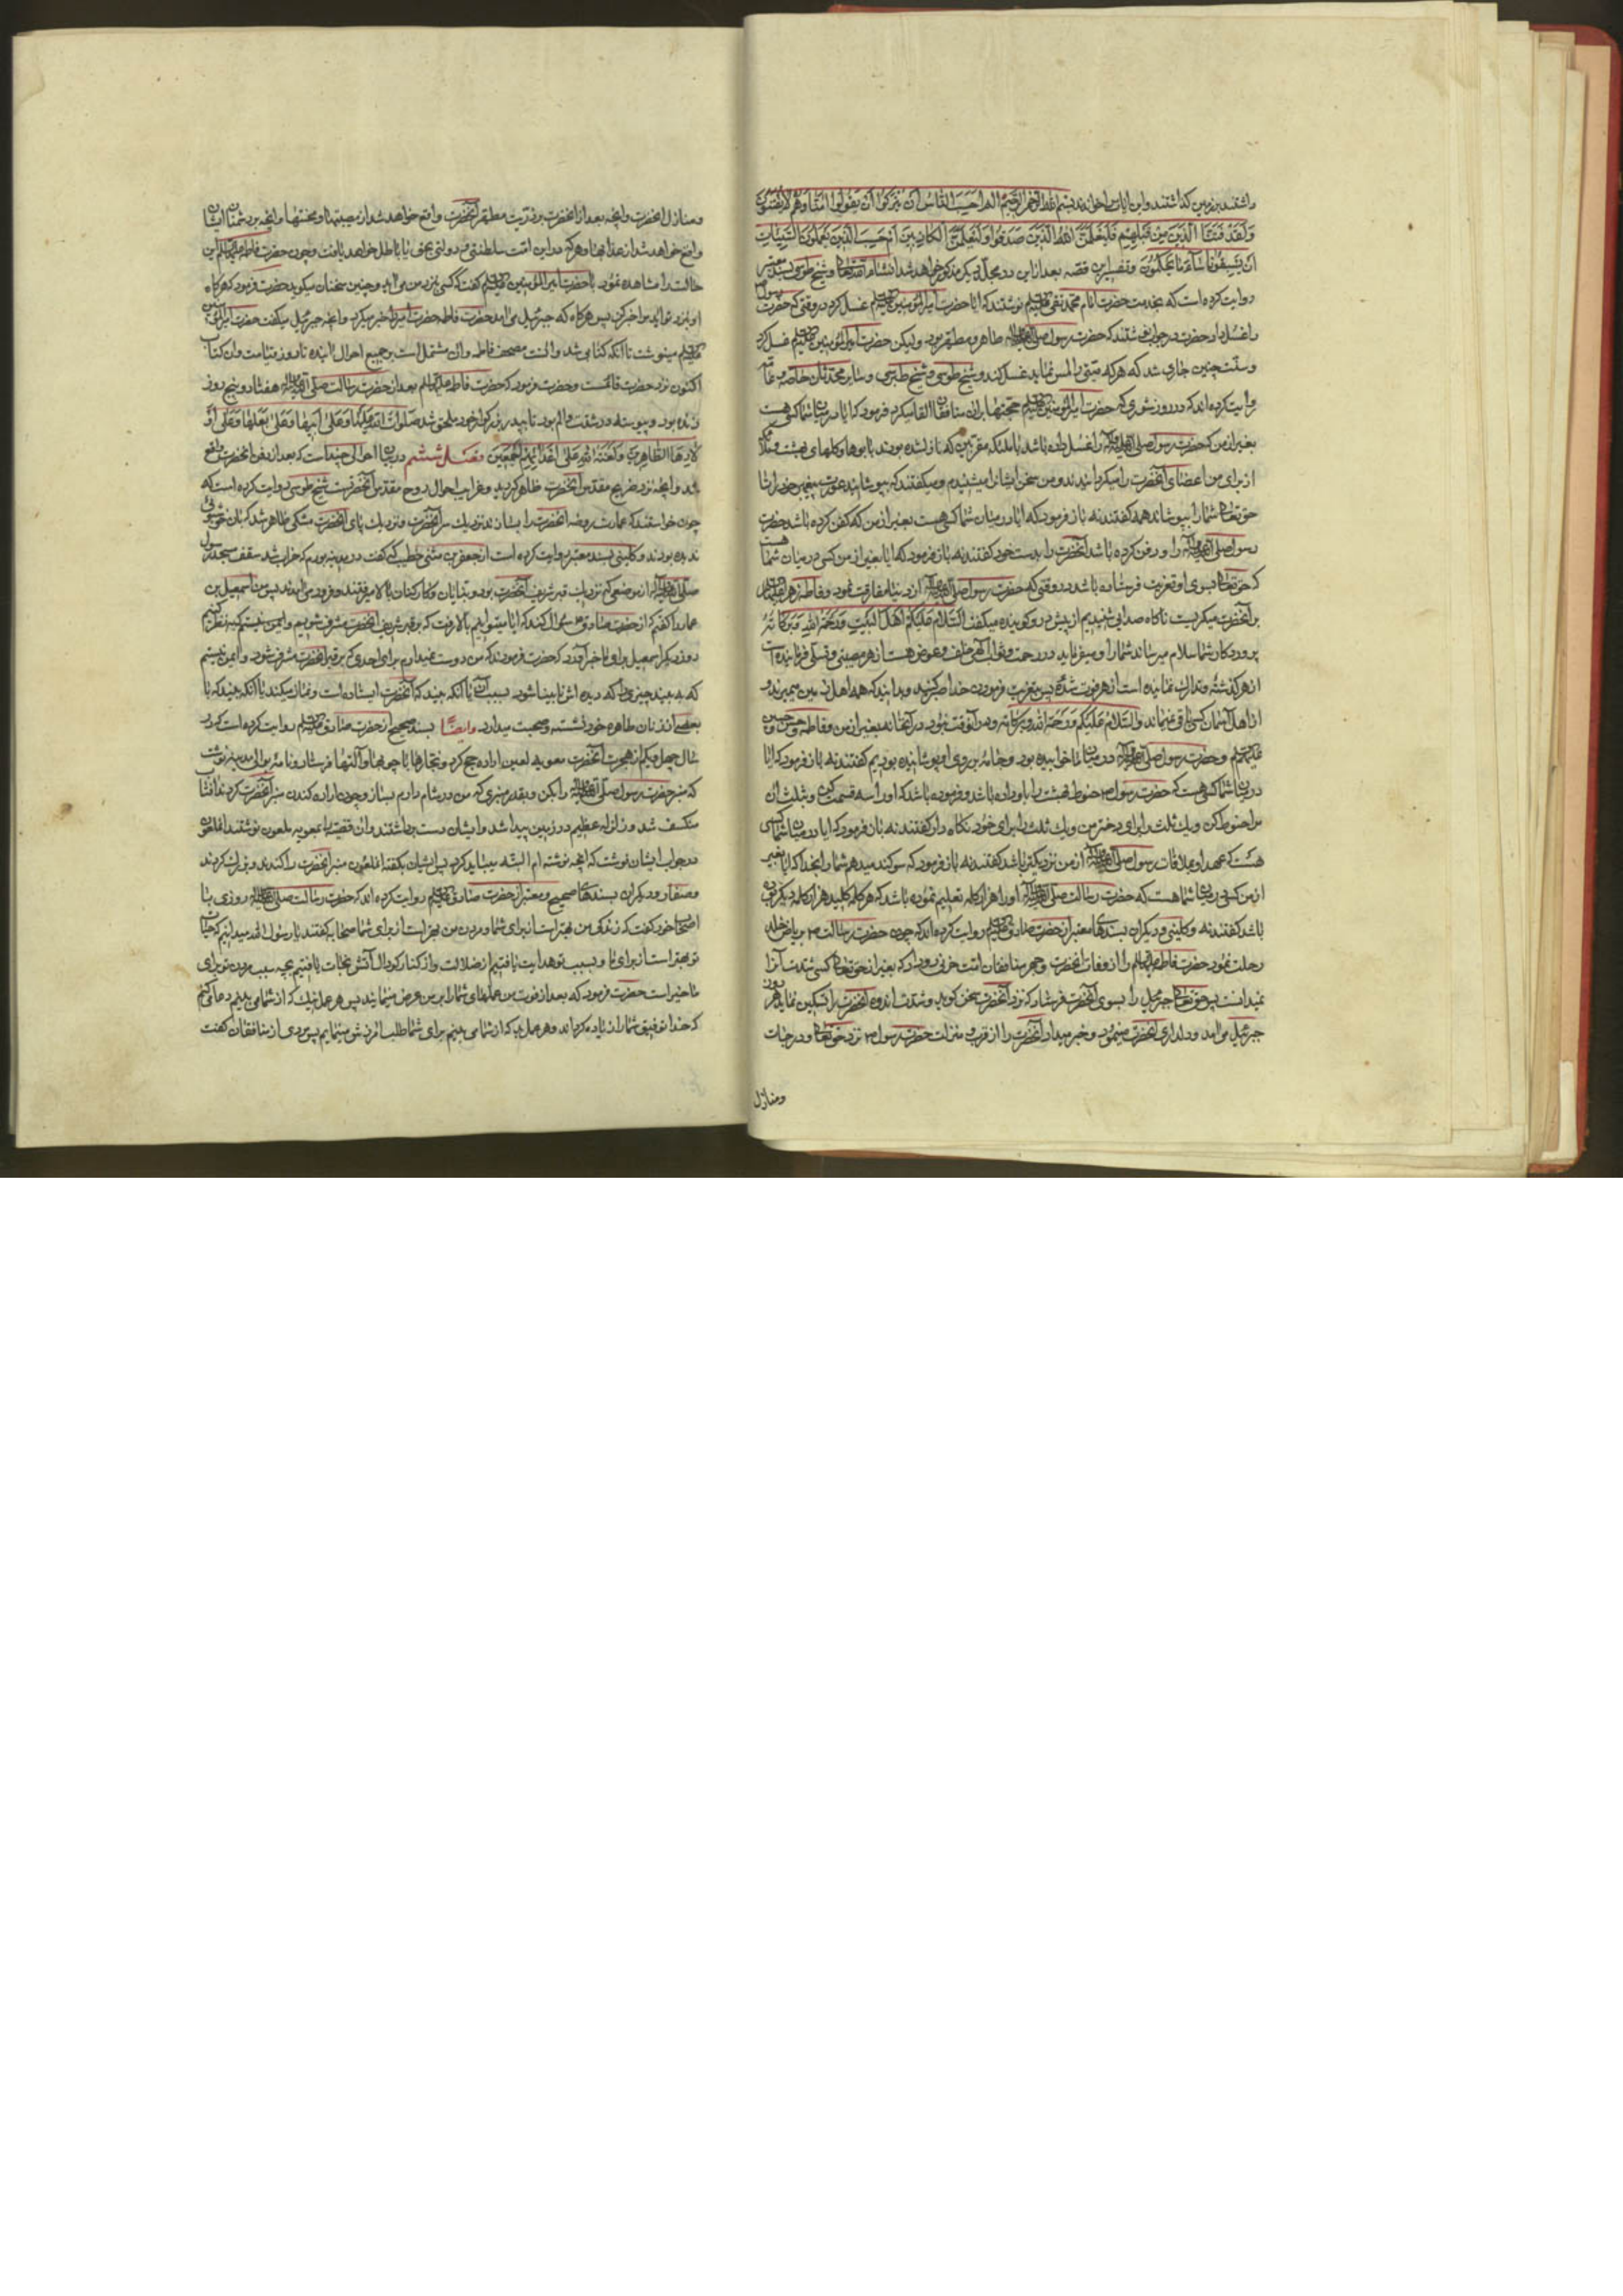 داشتند بر زمین گذاشتند و این آیات را خواندند بسم الله الرحمن الرحیم الم احسب الناس ان یترکوا ان یقولوا امنا و هم لا یفتنون
و لقد فتنا الذین من قبلهم فلیعلمن الله الذین صدقوا و لیعلمن الکاذبین ام حسب الذین یعملون السیئات
ان یسبقونا ساء ما یحکمون و تفسیر این قصه بعد از این در مجلد دیگر مذکور خواهد شد انشاء الله تعالی و شیخ طوسی بسند معتبر
روایت کرده است که بخدمت حضرت امام محمد نقی علیه السلام نوشتند که ایا حضرت امیر المؤمنین علیه السلام غسل کرد در وقتی که حضرت رسول
را غسل داد حضرت در جواب نوشتند که حضرت رسول صلی الله علیه و آله طاهر و مطهر بود ولیکن حضرت امیر المؤمنین علیه السلام غسل کرد
و سنت چنین جاری شد که هر که میتی را لمس نماید غسل کند و شیخ طوسی و شیخ طبرسی و سایر محدثان خاصه و عامه
روایت کرده اند که در روز شوری که حضرت امیر المؤمنین علیه السلام حجتها بران منافقان القا میکرد فرمود که ایا در میان شما کسی هست
بغیر از من که حضرت رسول صلی الله علیه و آله را غسل داده باشد با ملئکه مقربین که نازل شده بودند با بوها و گلهای بهشت و ملئکه
از برای من اعضای آنحضرت را میگردانیدند و من سخن ایشان را میشنیدم و میگفتند که بپوشانید عورت پیغمبر خود را تا
حق تعالی شما را بپوشاند همه گفتند نه باز فرمود که ایا در میان شما کسی هست بغیر از من که کفن کرده باشد حضرت
رسول صلی الله علیه و آله را و دفن کرده باشد آنحضرت را بدست خود گفتند نه باز فرمود که ایا بغیر از من کسی در میان شما هست
که حق تعالی بسوی او تعزیت فرستاده باشد در وقتی که حضرت رسول صلی الله علیه و آله از دنیا مفارقت نمود و فاطمه زهرا علیها السلام
بر آنحضرت میگریست ناگاه صدائی شنیدیم از پیش در و گوینده میگفت السلام علیکم اهل البیت و رحمة الله و برکاته
پروردگار شما سلام میرساند شما را و میفرماید در رحمت و ثواب الهی خلف و عوض هست از هر مصیبتی و تسلی فرماینده است
از هر گذشته و تدارک نماینده است از هر فوت شده پس بتعزیت فرمودن خدا صبر کنید و بدانید که همه اهل زمین میمیرند و
از اهل آسمان کسی باقی نمیماند والسلام علیکم و رحمة الله و برکاته و من آنوقت نبود در آنخانه بغیر از من و فاطمه و حسن و حسین
علیهم السلام و حضرت رسول صلی الله علیه و آله در میان ما خوابیده بود و جامه بر روی او پوشانیده بودیم گفتند نه باز فرمود که ایا
در میان شما کسی هست که حضرت رسول ص حنوط بهشت را باو داده باشد و فرموده باشد که او را سه قسمت کن و بثلث آن
مرا حنوط کن و یک ثلث را برای دختر من و یک ثلث را برای خود نگاه دار گفتند نه باز فرمود که ایا در میان شما کسی
هست که عهد او بملاقات رسول صلی الله علیه و آله از من نزدیکتر باشد گفتند نه باز فرمود که سوگند میدهم شما را بخدا که ایا بغیر
از من کسی در میان شما هست که حضرت رسالت صلی الله علیه و آله او را هزار کلمه تعلیم نموده باشد که هر کلمه کلید هزار کلمه دیگر بوده
باشد گفتند نه و کلینی و دیگران بسندهای معتبر از حضرت صادق علیه السلام روایت کرده اند که چون حضرت رسالت ص بریاض خلد
رحلت نمود حضرت فاطمه علیها السلام را از وفات آنحضرت و جور منافقان امت حزنی رو داد که بغیر از حق تعالی کسی شدت آنرا
نمیدانست پس حق تعالی جبرئیل را بسوی آنحضرت فرستاد که نزد آنحضرت سخن گوید و شدت اندوه آنحضرت را تسکین نماید هر روز
جبرئیل می آمد و دلداری آنحضرت مینمود و خبر میداد آنحضرت را از قرب و منزلت حضرت رسول ص نزد حق تعالی و درجات
و منازل
و منازل آنحضرت و آنچه بعد از آنحضرت بر ذریت مطهر آنحضرت واقع خواهد شد از مصیبتها و محنتها و آنچه بر دشمنان ایشان
واقع خواهد شد از عذابها و هر که در این امت سلطنتی و دولتی بحق یا باطل خواهد یافت و چون حضرت فاطمه علیها السلام این
حالت را مشاهده نمود با حضرت امیر المؤمنین علیه السلام گفت که کسی نزد من می آید و چنین سخنان میگوید حضرت فرمود که هرگاه
او بنزد تو آید مرا خبر کن پس هرگاه که جبرئیل می آمد حضرت فاطمه حضرت امیر را خبر میکرد و آنچه جبرئیل میگفت حضرت امیر المؤمنین
علیه السلام مینوشت تا آنکه کتابی شد و آنست مصحف فاطمه و آن مشتمل است بر جمیع احوال آینده تا روز قیامت و ان کتاب
اکنون نزد حضرت قائمست و حضرت فرمود که حضرت فاطمه علیها السلام بعد از حضرت رسالت صلی الله علیه و آله هفتاد و پنج روز
زنده بود و پیوسته در شدت و الم بود تا بپدر بزرگوار خود ملحق شد صلوات الله علیها و علی ابیها و علی بعلها و علی او
لادها الطاهرین و لعنة الله علی اعدائهم اجمعین فصل ششم در بیان احوالی چند است که بعد از دفن آنحضرت واقع
شد و آنچه نزد ضریح مقدس آنحضرت ظاهر گردید و غرایب احوال روح مقدس آنحضرتست شیخ طوسی روایت کرده است که
چون خواستند که عمارت روضه آنحضرت را بسازند نزدیک سر آنحضرت و نزدیک پای آنحضرت مشکی ظاهر شد که بان خوشبوئی
ندیده بودند و کلینی بسند معتبر روایت کرده است از جعفر بن مثنی خطیب که گفت در مدینه بودم که خراب شد سقف مسجد رسول
صلی الله علیه و آله از موضعی که نزدیک قبر شریف آنحضرت بود و بنایان و کارکنان بالا میرفتند و فرود می آمدند پس من باسمعیل بن
عمار گفتم که از حضرت صادق ع سؤال کند که ایا میتوانیم بالا رفت که بر قبر شریف آنحضرت مشرف شویم و
روز دیگر اسمعیل برای ما خبر آورد که حضرت فرمودند که من دوست نمیدارم برای احدی که بر قبر آنحضرت مشرف شود و ایمن نیستم
که ببیند چیزی را که دیده اش نابینا شود بسبب آن یا آنکه ببیند که آنحضرت ایستاده است و نماز میکند یا آنکه ببیند که با
بعضی از زنان طاهره خود نشسته و صحبت میدارد و ایضا بسند صحیح از حضرت صادق علیه السلام روایت کرده است که در
سال چهل و یکم از هجرت آنحضرت معویه لعین اراده حج کرد و نجارها با چوبها و آلتها فرستاد و نامه بوالی مدینه نوشت
که منبر حضرت رسول صلی الله علیه و آله را بکن و بقدر منبری که من در شام دارم بساز و چون اراده کندن منبر آنحضرت کردند آفتاب
منکسف شد و زلزله عظیم در زمین پیدا شد و ایشان دست برداشتند و ان قضیه را بمعویه ملعون نوشتند آنملعون
در جواب ایشان نوشت که آنچه نوشته ام البته میباید کرد پس ایشان بگفته آنملعون منبر آنحضرت را کندند و بزرگ کردند
و صفار و دیگران بسندهای صحیح و معتبر از حضرت صادق علیه السلام روایت کرده اند که حضرت رسالت صلی الله علیه و آله روزی با
اصحاب خود گفت که زندگی من بهتر است از برای شما و مردن من بهتر است از برای شما صحابه گفتند یا رسول الله میدانیم که حیات
تو بهتر است از برای ما و بسبب تو هدایت یافتیم از ضلالت و از کنار گودال آتش نجات یافتیم بچه سبب مردن تو برای
ما خیر است حضرت فرمود که بعد از فوت من عملهای شما را بر من عرض مینمایند پس هر عمل نیک که از شما می بینم دعا میکنم
که خدا توفیق شما را زیاده گرداند و هر عمل بد که از شما می بینم برای شما طلب آمرزش مینمایم پس مردی از منافقان گفت